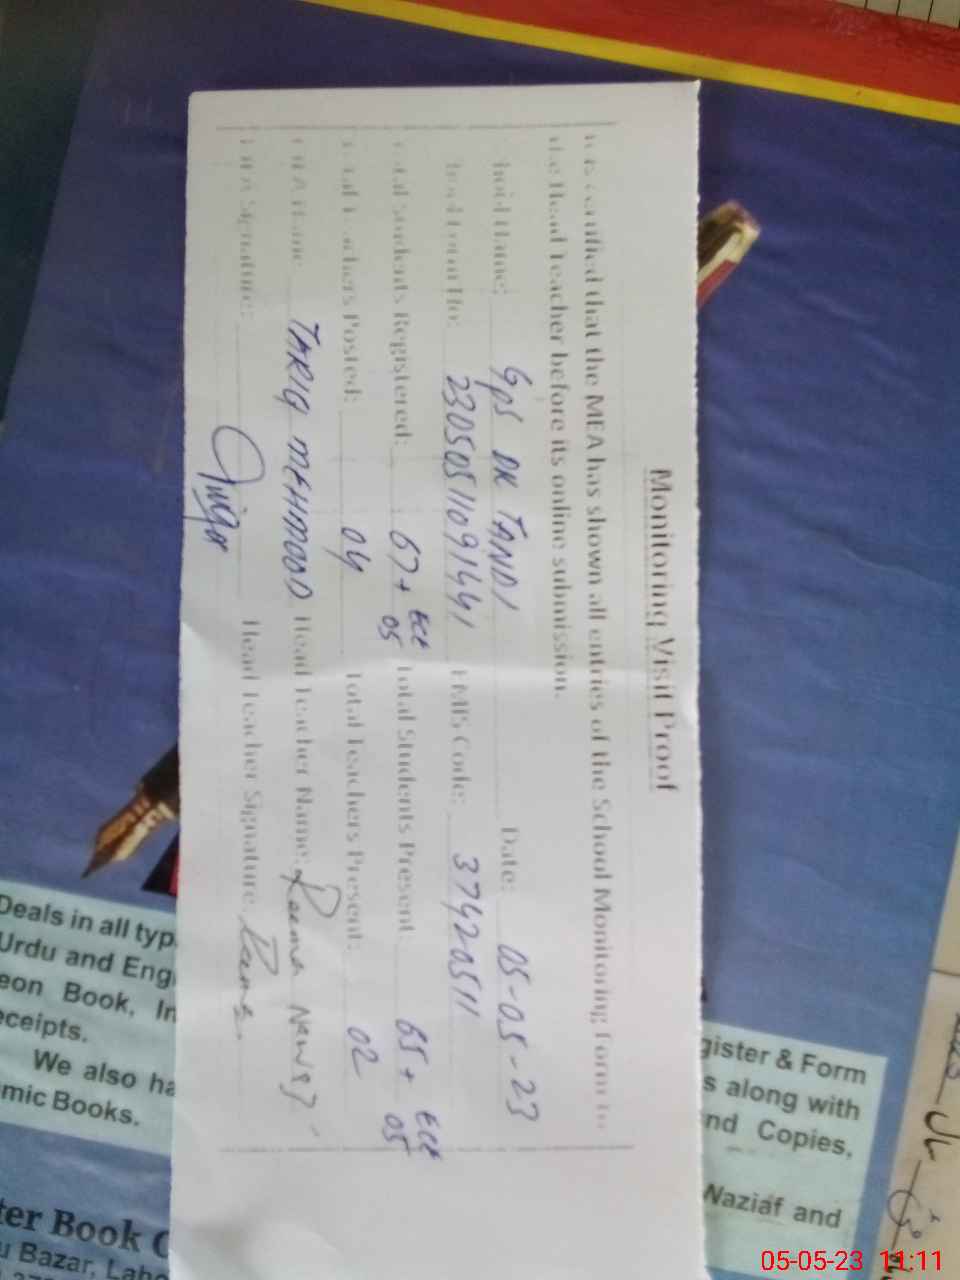 Monitoring Visit Proof
It is certified that the MEA has shown all entries of the School Monitoring Form to
the Head Teacher before its online submission.
School Name: GPS DK TANDI Date: 05-05-23
23050511091441 EMIS Code: 37420511
Total Students Registered: 67+ ECE 05 Total Students Present: 65+ ECE 05
Total Teachers Posted: 04 Total Teachers Present: 02
MEA Name: TARIQ MEHMOOD Head Teacher Name: Reema
MEA Signature: Head Teacher Signature:
Deals in all typ
Urdu and Eng
eon Book, In
eceipts.
We also ha
mic Books.
gister & Form
s along with
nd Copies,
Naziaf and
ter Book C
u Bazar, Laho
05-05-23 11:11